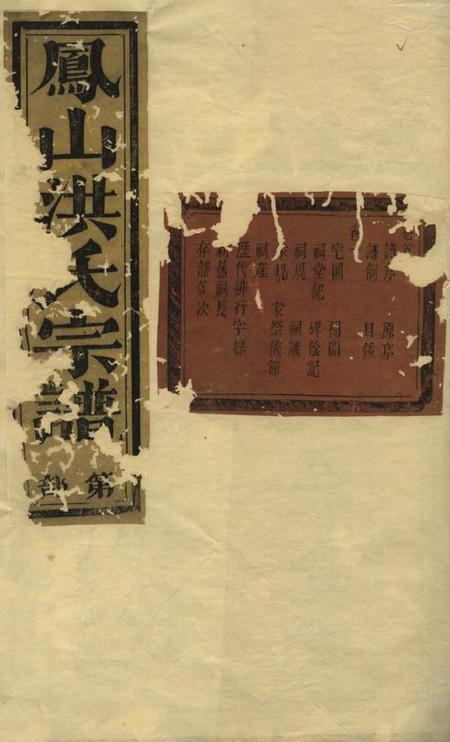 鳳山洪氏宗譜
第 部
卷首
譜序 原序
譜例 目錄
宅圖 祠圖
祠堂記 碑陰記
祠規 祠議
規 家祭儀節
祠產
歷代排行字樣
新舊祠長
存譜名次